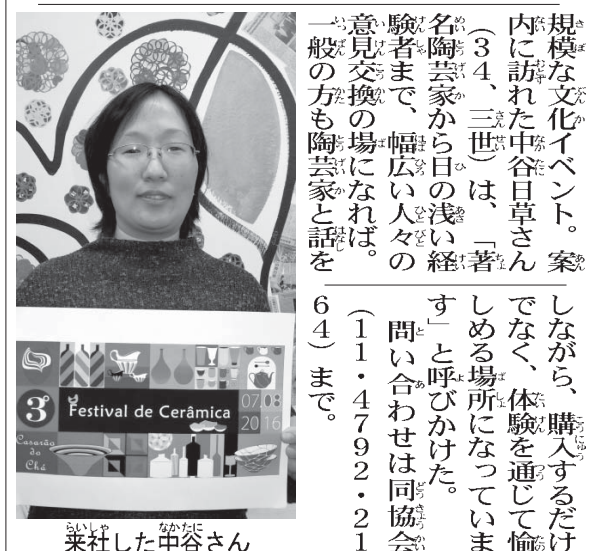 規模な文化イベント。案
内に訪れた中谷日草さん
（３４、三世）は、「著
名陶芸家から日の浅い経
験者まで、幅広い人々の
意見交換の場になれば。
一般の方も陶芸家と話を
しながら、購入するだけ
でなく、体験を通じて愉
しめる場所になっていま
す」と呼びかけた。
問い合わせは同協会
（１１・４７９２・２１
６４）まで。
3º
Festival de Cerâmica
07.08
2016
Casarão
do
Chá
来社した中谷さん